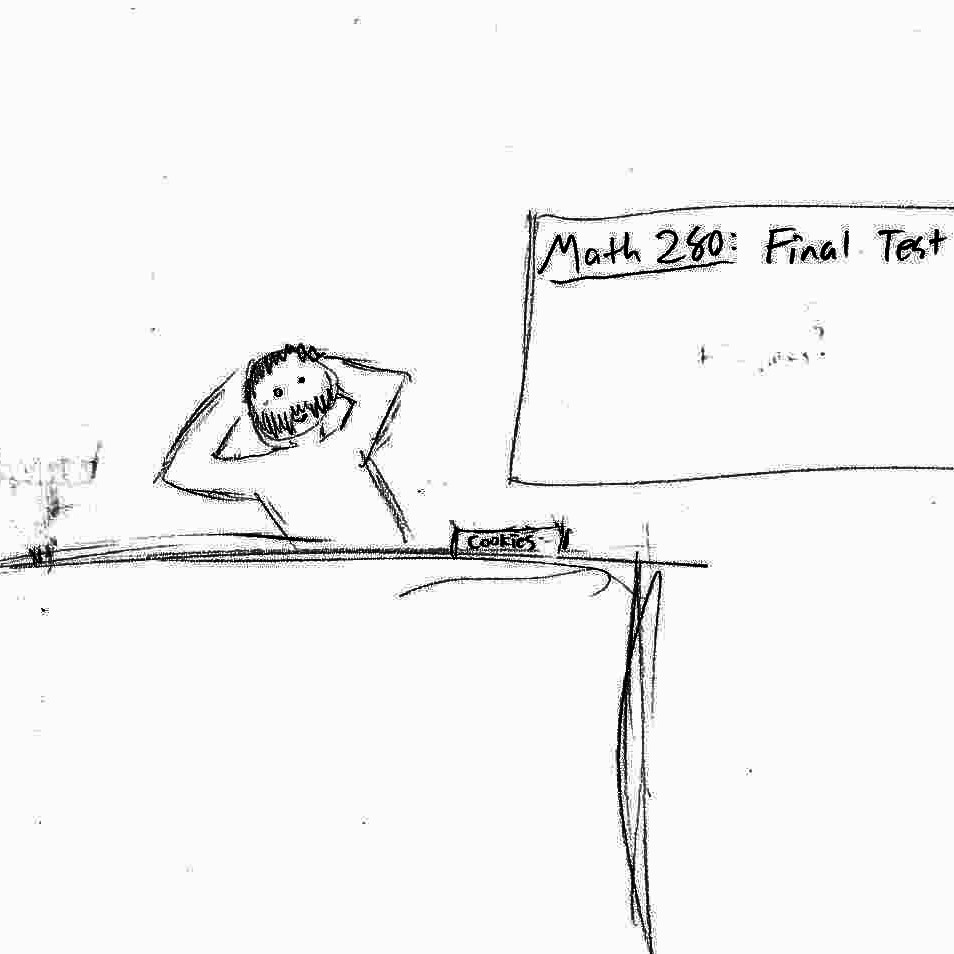 Math 280: Final Test
Cookies